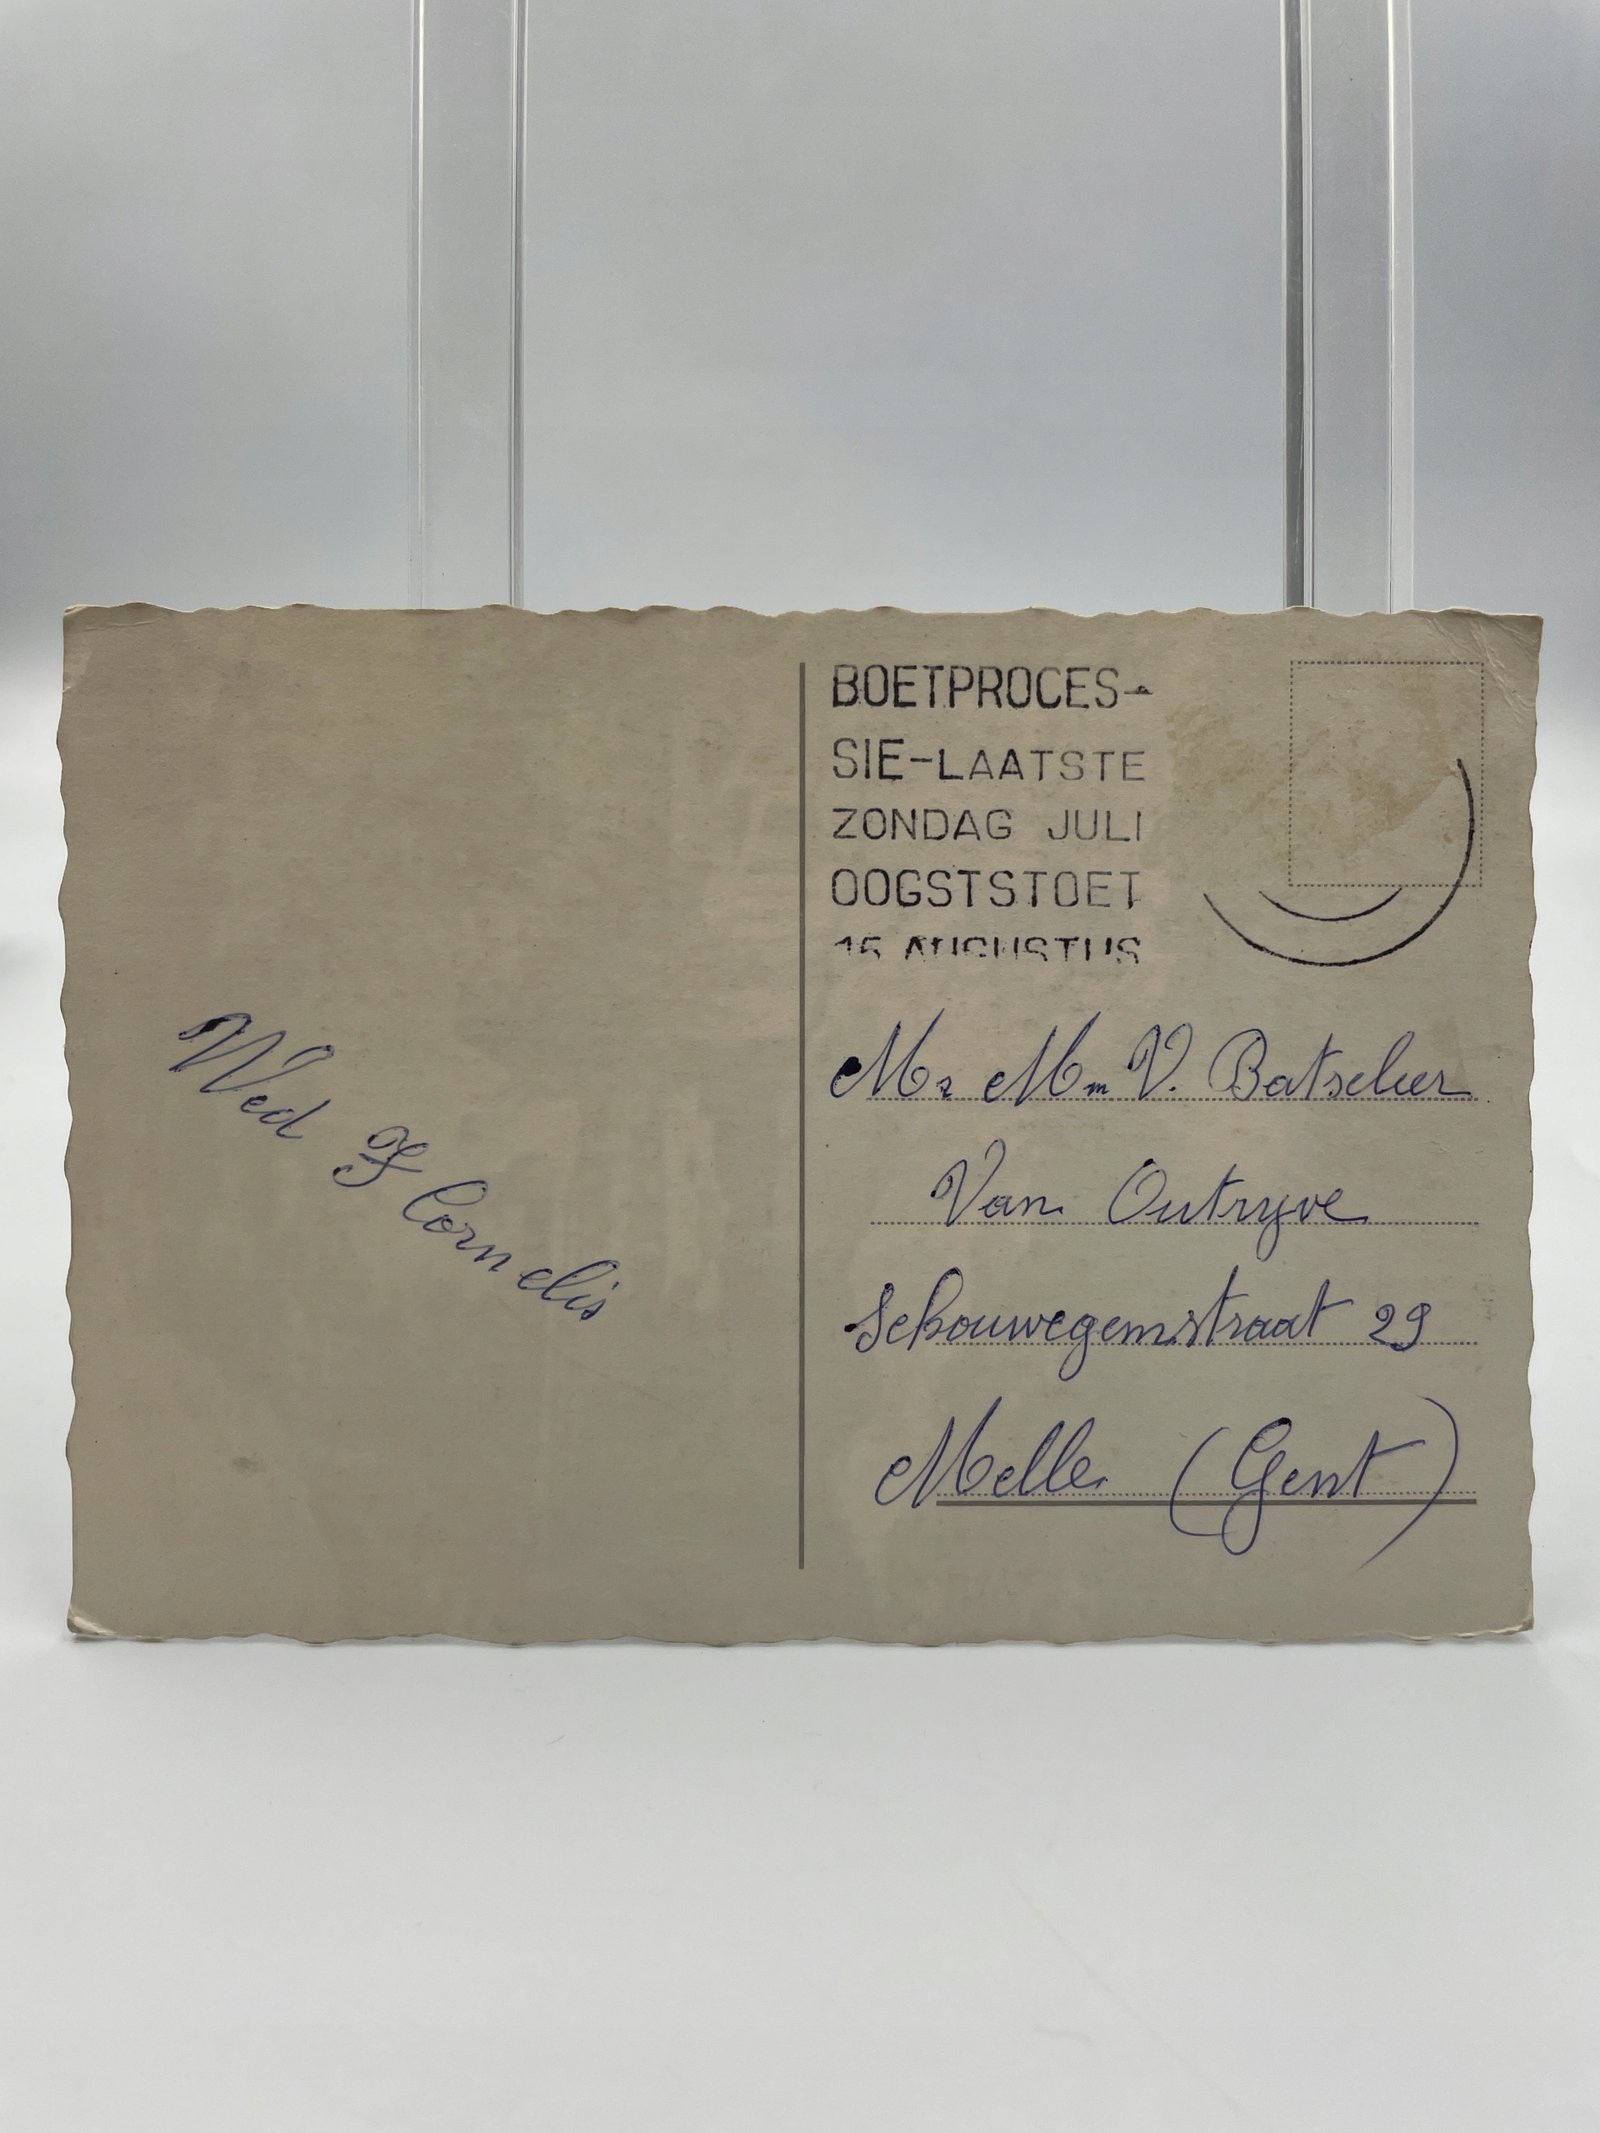 BOETPROCES-
SIE-LAATSTE
ZONDAG JULI
OOGSTSTOET
15 AUGUSTUS
Wed F Cornelis
Mr Mm V. Batselier
Van Outryve
Schouwegemstraat 29
Melle (Gent)